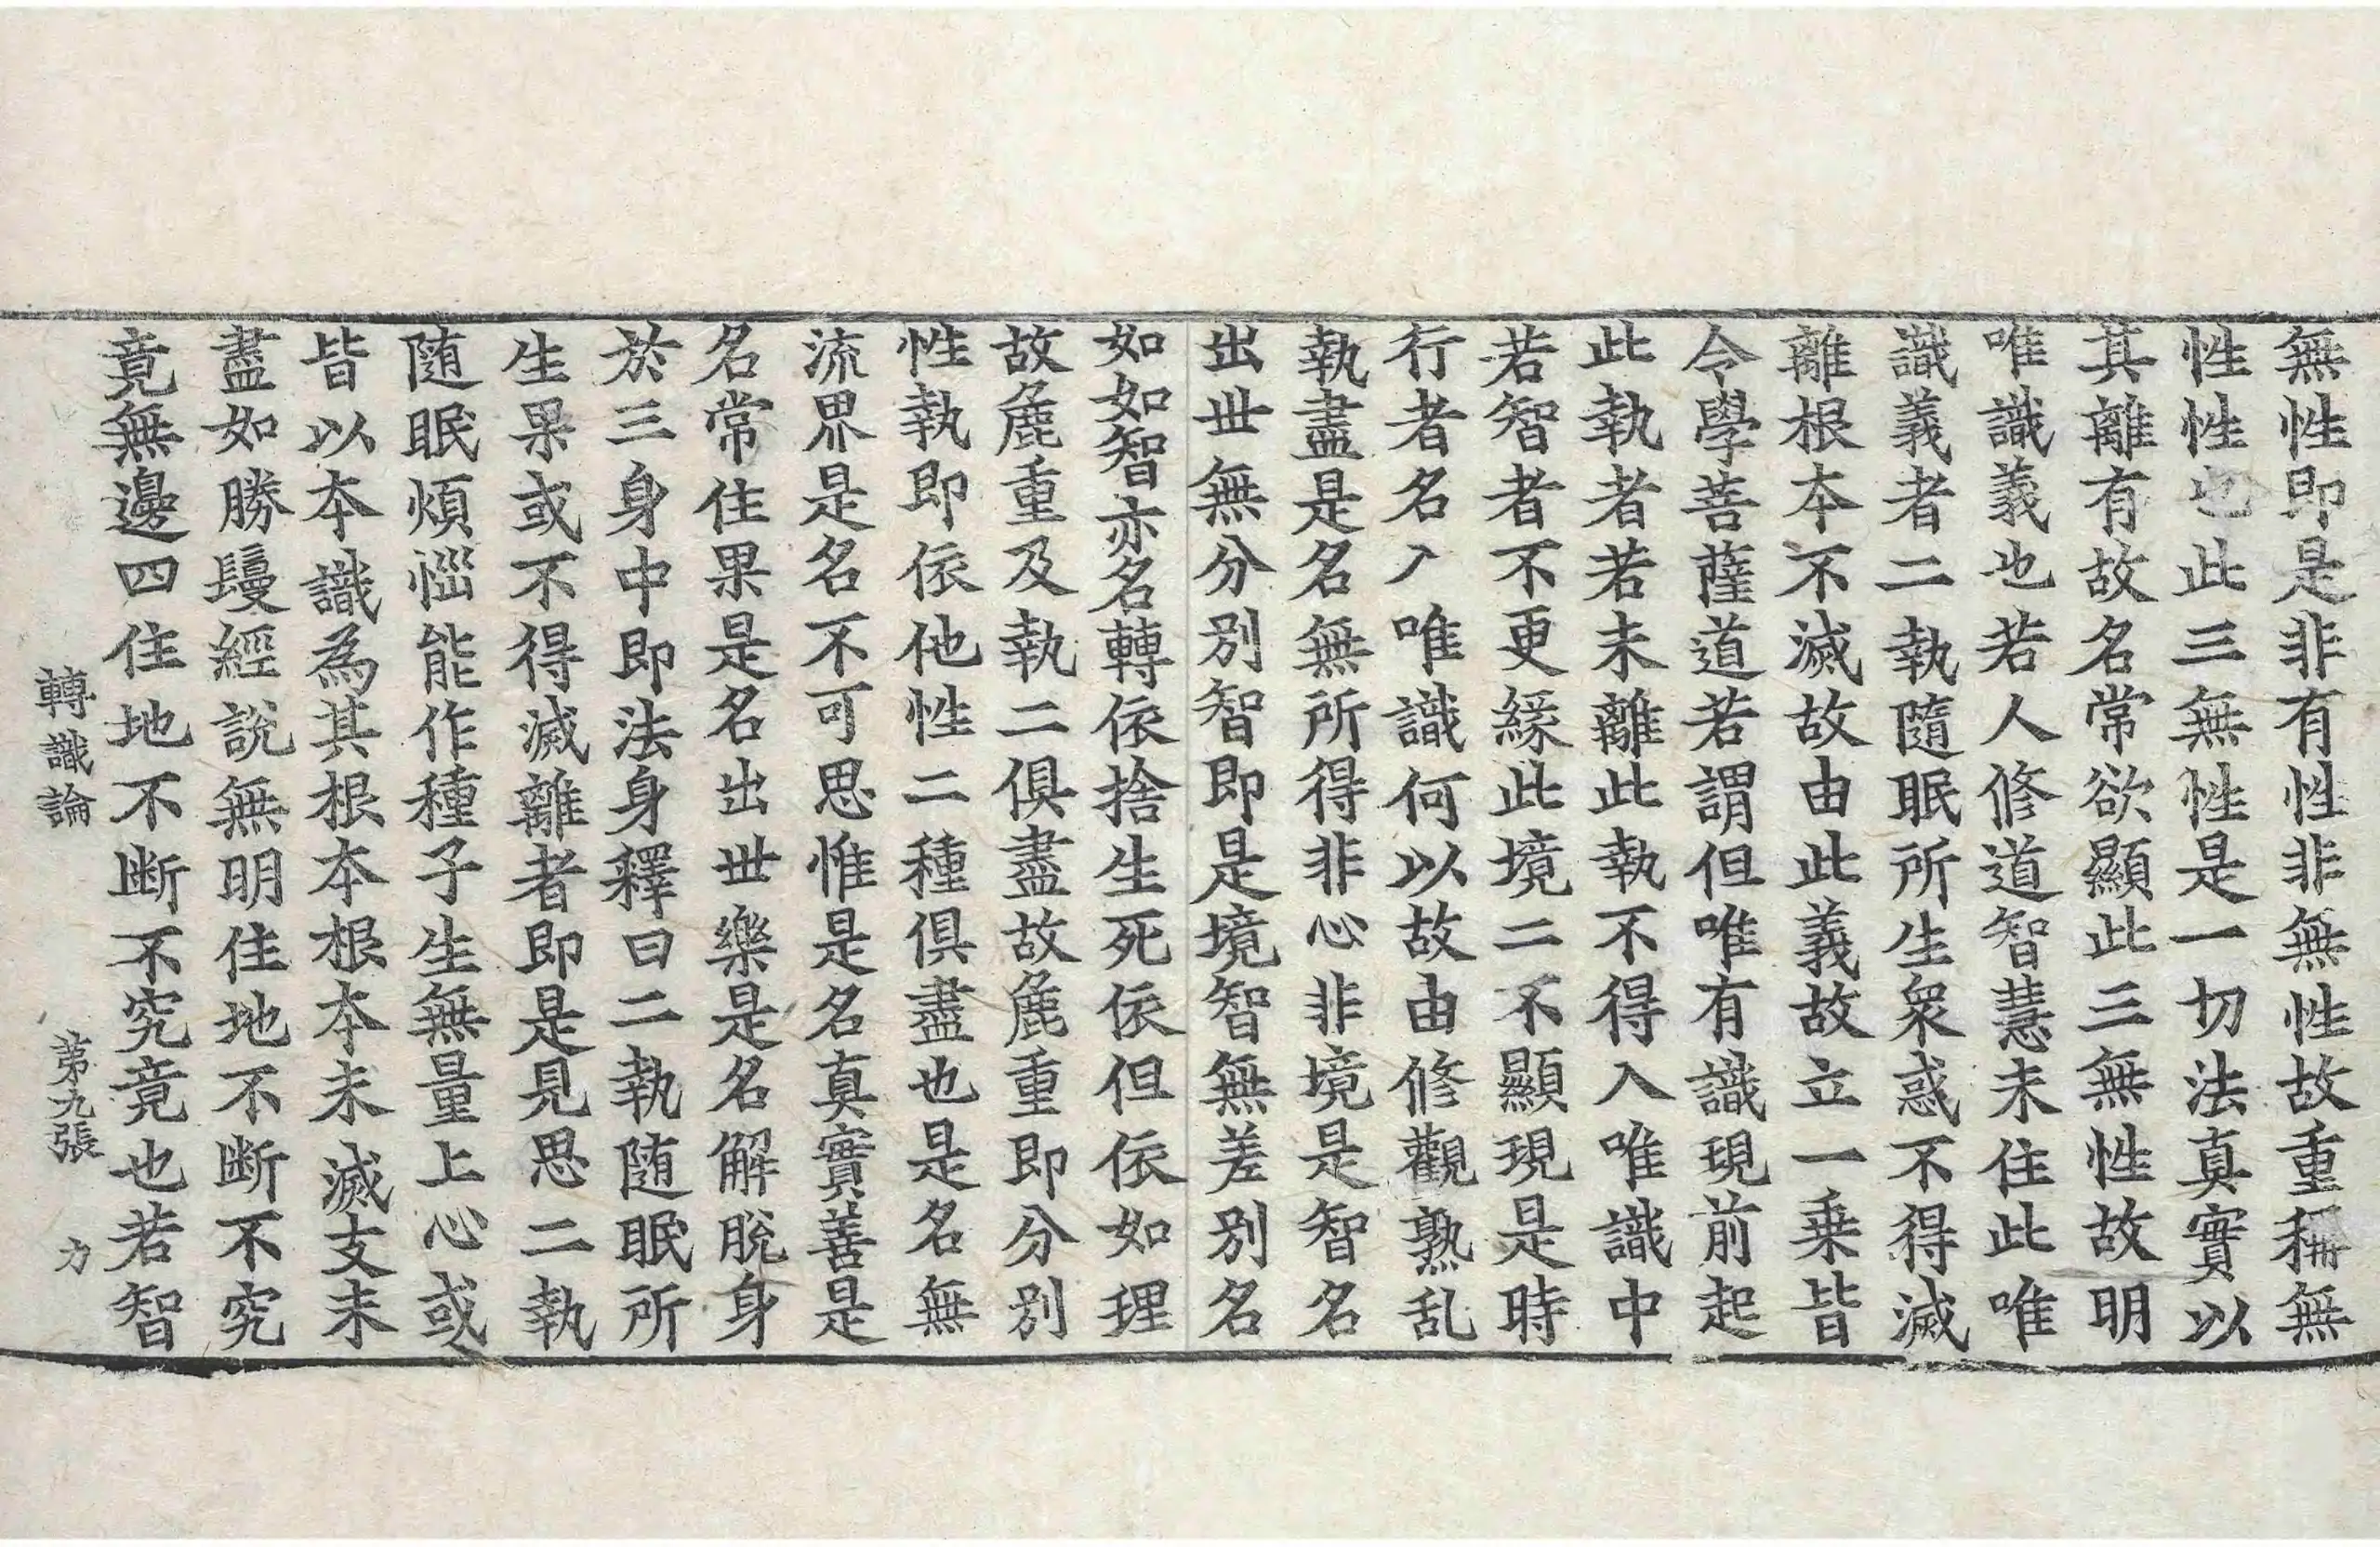 無性即是非有性非無性故重稱無
性性也此三無性是一切法真實以
其離有故名常欲顯此三無性故明
唯識義也若人修道智慧未住此唯
識義者二執隨眠所生衆惑不得滅
離根本不滅故由此義故立一乗皆
令學菩薩道若謂但唯有識現前起
此執者若未離此執不得入唯識中
若智者不更緣此境二不顯現是時
行者名入唯識何以故由修觀熟乱
執盡是名無所得非心非境是智名
出世無分別智即是境智無差別名
如如智亦名轉依捨生死依但依如理
故麁重及執二俱盡故麁重即分別
性執即依他性二種俱盡也是名無
流界是名不可思惟是名真實善是
名常住果是名出世樂是名解脫身
於三身中即法身釋曰二執随眠所
生果或不得滅離者即是見思二執
随眠煩惱能作種子生無量上心或
皆以本識為其根本根本未滅支末
盡如勝鬘經說無明住地不断不究
竟無邊四住地不断不究竟也若智
轉識論　第九張　力